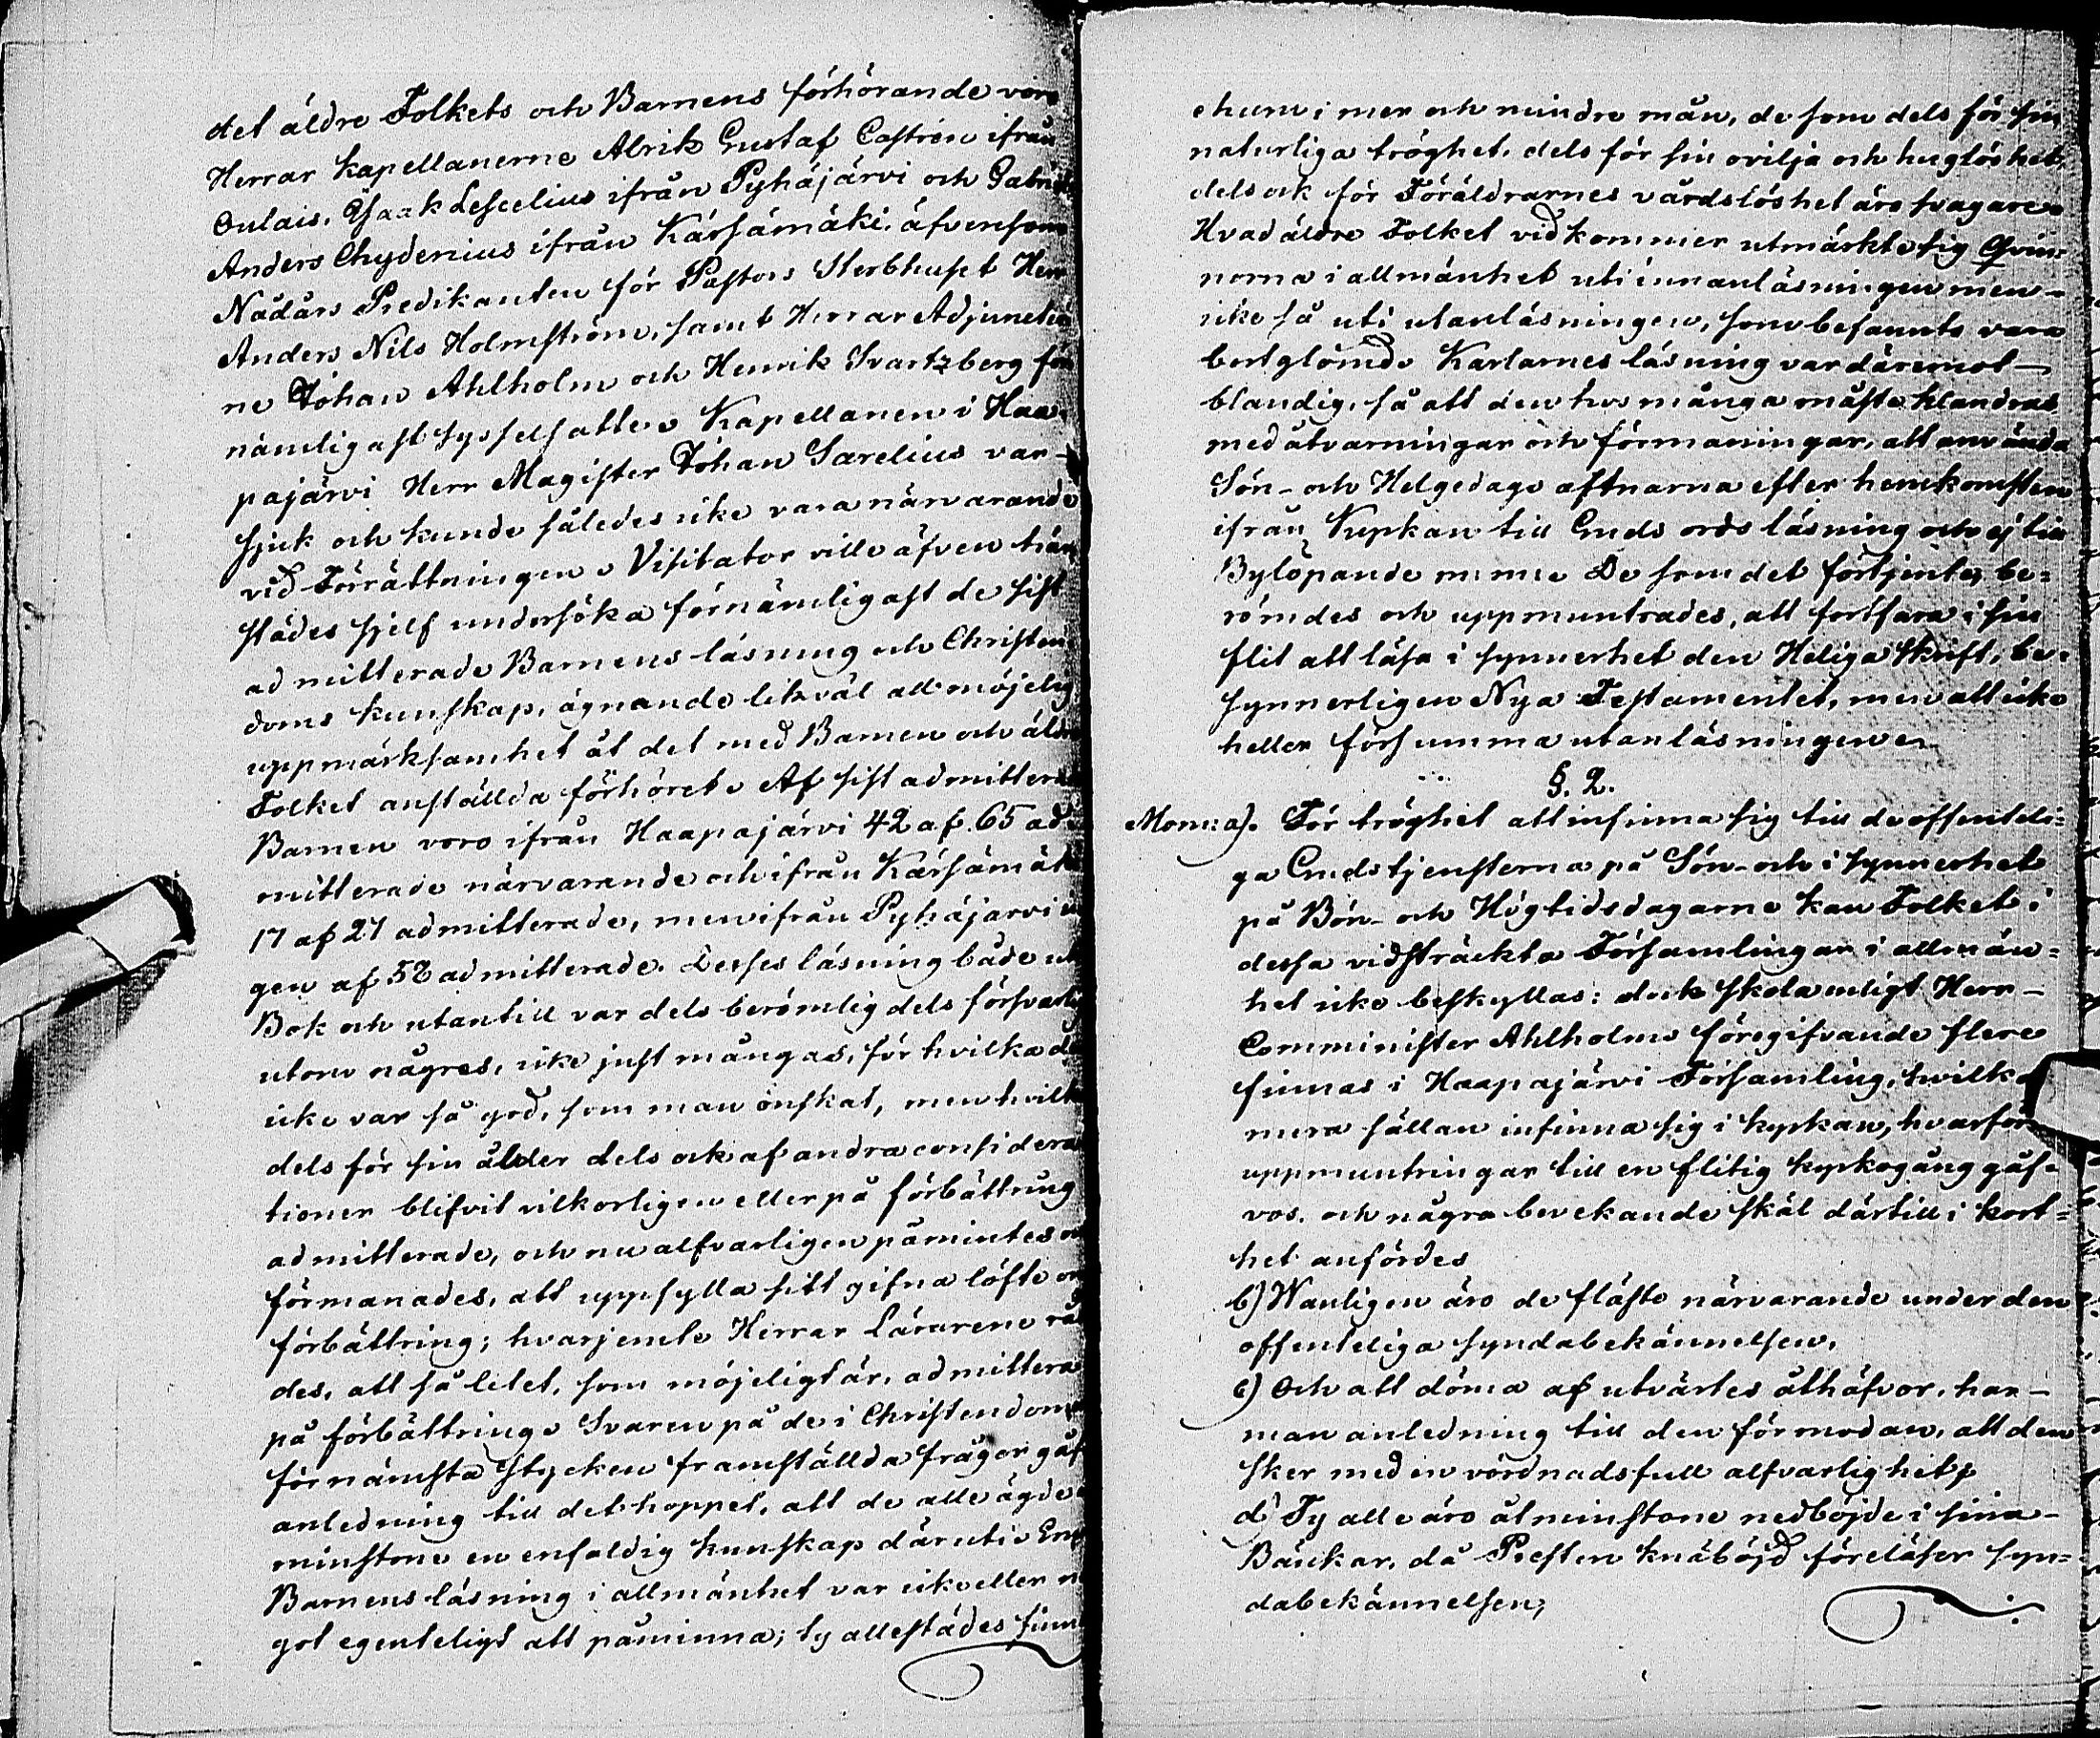 det äldre Folkets och Barnens förhörande voro
Herrar Kapellanerne Alrik Gustaf Castrén ifrån
Oulais, Isaak Lescelius ifrån Pyhäjärvi och Gabriel
Anders Chydenius ifrån Kärsämäki, äfvensom
Nådårs Predikanten för Pastors Sterbhuset Herr
Anders Nils Holmström, samt Herrar Adjuncter-
ne Johan Ahlholm och Henrik Svartzberg för
nämligast sysselsatte. Kapellanen i Haa-
pajärvi Herr Magister Johan Sarelius var-
sjuk och kunde således icke vara närvarande
vid Förrättningen. Visitator ville äfven här
städes sjelf undersöka förnämligast de sist
admitterade Barnens läsning och Christen
doms kunskap, ägnande likväl all möjelig
uppmärksamhet åt det med Barnen och äldre
Folket anstälda förhöret. Af sist admitterade
Barnen voro ifrån Haapajärvi 42 af 65 ad-
mitterade närvarande och ifrån Kärsämäki
17 af 27 admitterade, men ifrån Pyhäjarvi in
gen af 58 admitterade. Desses läsning både ut
Bok och utantill var dels berömlig dels försvarlig
utom någres, icke just mångas, för hvilka den
icke var så god, som man önskat, men hvilka
dels för sin ålder dels ock af andra considera
tioner blifvit vilkorligen eller på förbättring
admitterade, och nu alfvarligen påmintes och
förmanades, att uppfylla sitt gifna löfte om
förbättring; hvarjemte Herrar Lärarene råd
des, att så litet, som möjeligt är, admittera
på förbättring. Svaren på de i Christendomens
förnämsta Stycken framställda frågor gåf
anledning till det hoppet, att de alle ägde
minstone en enfaldig kunskap däruti.
Barnens läsning i allmänhet var icke eller nå
got egenteligt att påminna; ty allestädes finnas
ehuru i mer och mindre mån, de som dels för sin
naturliga tröghet, dels för sin ovilja och huglöshet,
dels ock för Föräldrarnes vårdslöshet äro svagare.
Hvad äldre Folket vidkommer utmärkte sig Qvin-
norna i allmänhet uti innanläsningen men-
icke så uti utanläsningen, som befannts vara
bortglömd. Karlarnes läsning var däremot-
blandig, så att den hos många måste klandras
med åtvarningar och förmaningar, att använda
Sön- och Helgedags aftnarna efter hemkomsten
ifrån Kyrkan till Guds ords läsning och ej till
Bylöpande m:m:. De som det förtjente, be-
römdes och uppmuntrades, att fortfara i sin
flit att läsa i synnerhet den Heliga Skrift, be-
synnerligen Nya Testamentet, men att icke
heller försumma utanläsningen.
§. 2.
Mom: a). För tröghet att infinna sig till de offenteli-
ga Gudstjensterna på Sön- och i synnerhet
på Bön- och Högtidsdagarne kan Folket i
dessa vidsträckta Församlingar i allmän-
het icke beskyllas: dock skola enligt Herr-
Comminister Ahlholms föregifvande flere
finnas i Haapajärvi Församling, hvilka
mera sällan infinna sig i kyrkan, hvarför
uppmuntringar till en flitig kyrkogång gåf-
vos, och några bevekande skäl därtill i kort-
het anfördes
b) Wanligen äro de fläste närvarande under den
offenteliga syndabekännelsen,
c) Och att döma af utvärtes åthäfvor, har-
man anledning till den förmodan, att den
sker med en vördnadsfull alfvarlighet;
d) Ty alle äro åtminstone nedböjde i sina-
Bänkar, då Presten knäböjd föreläser syn-
dabekännelsen;